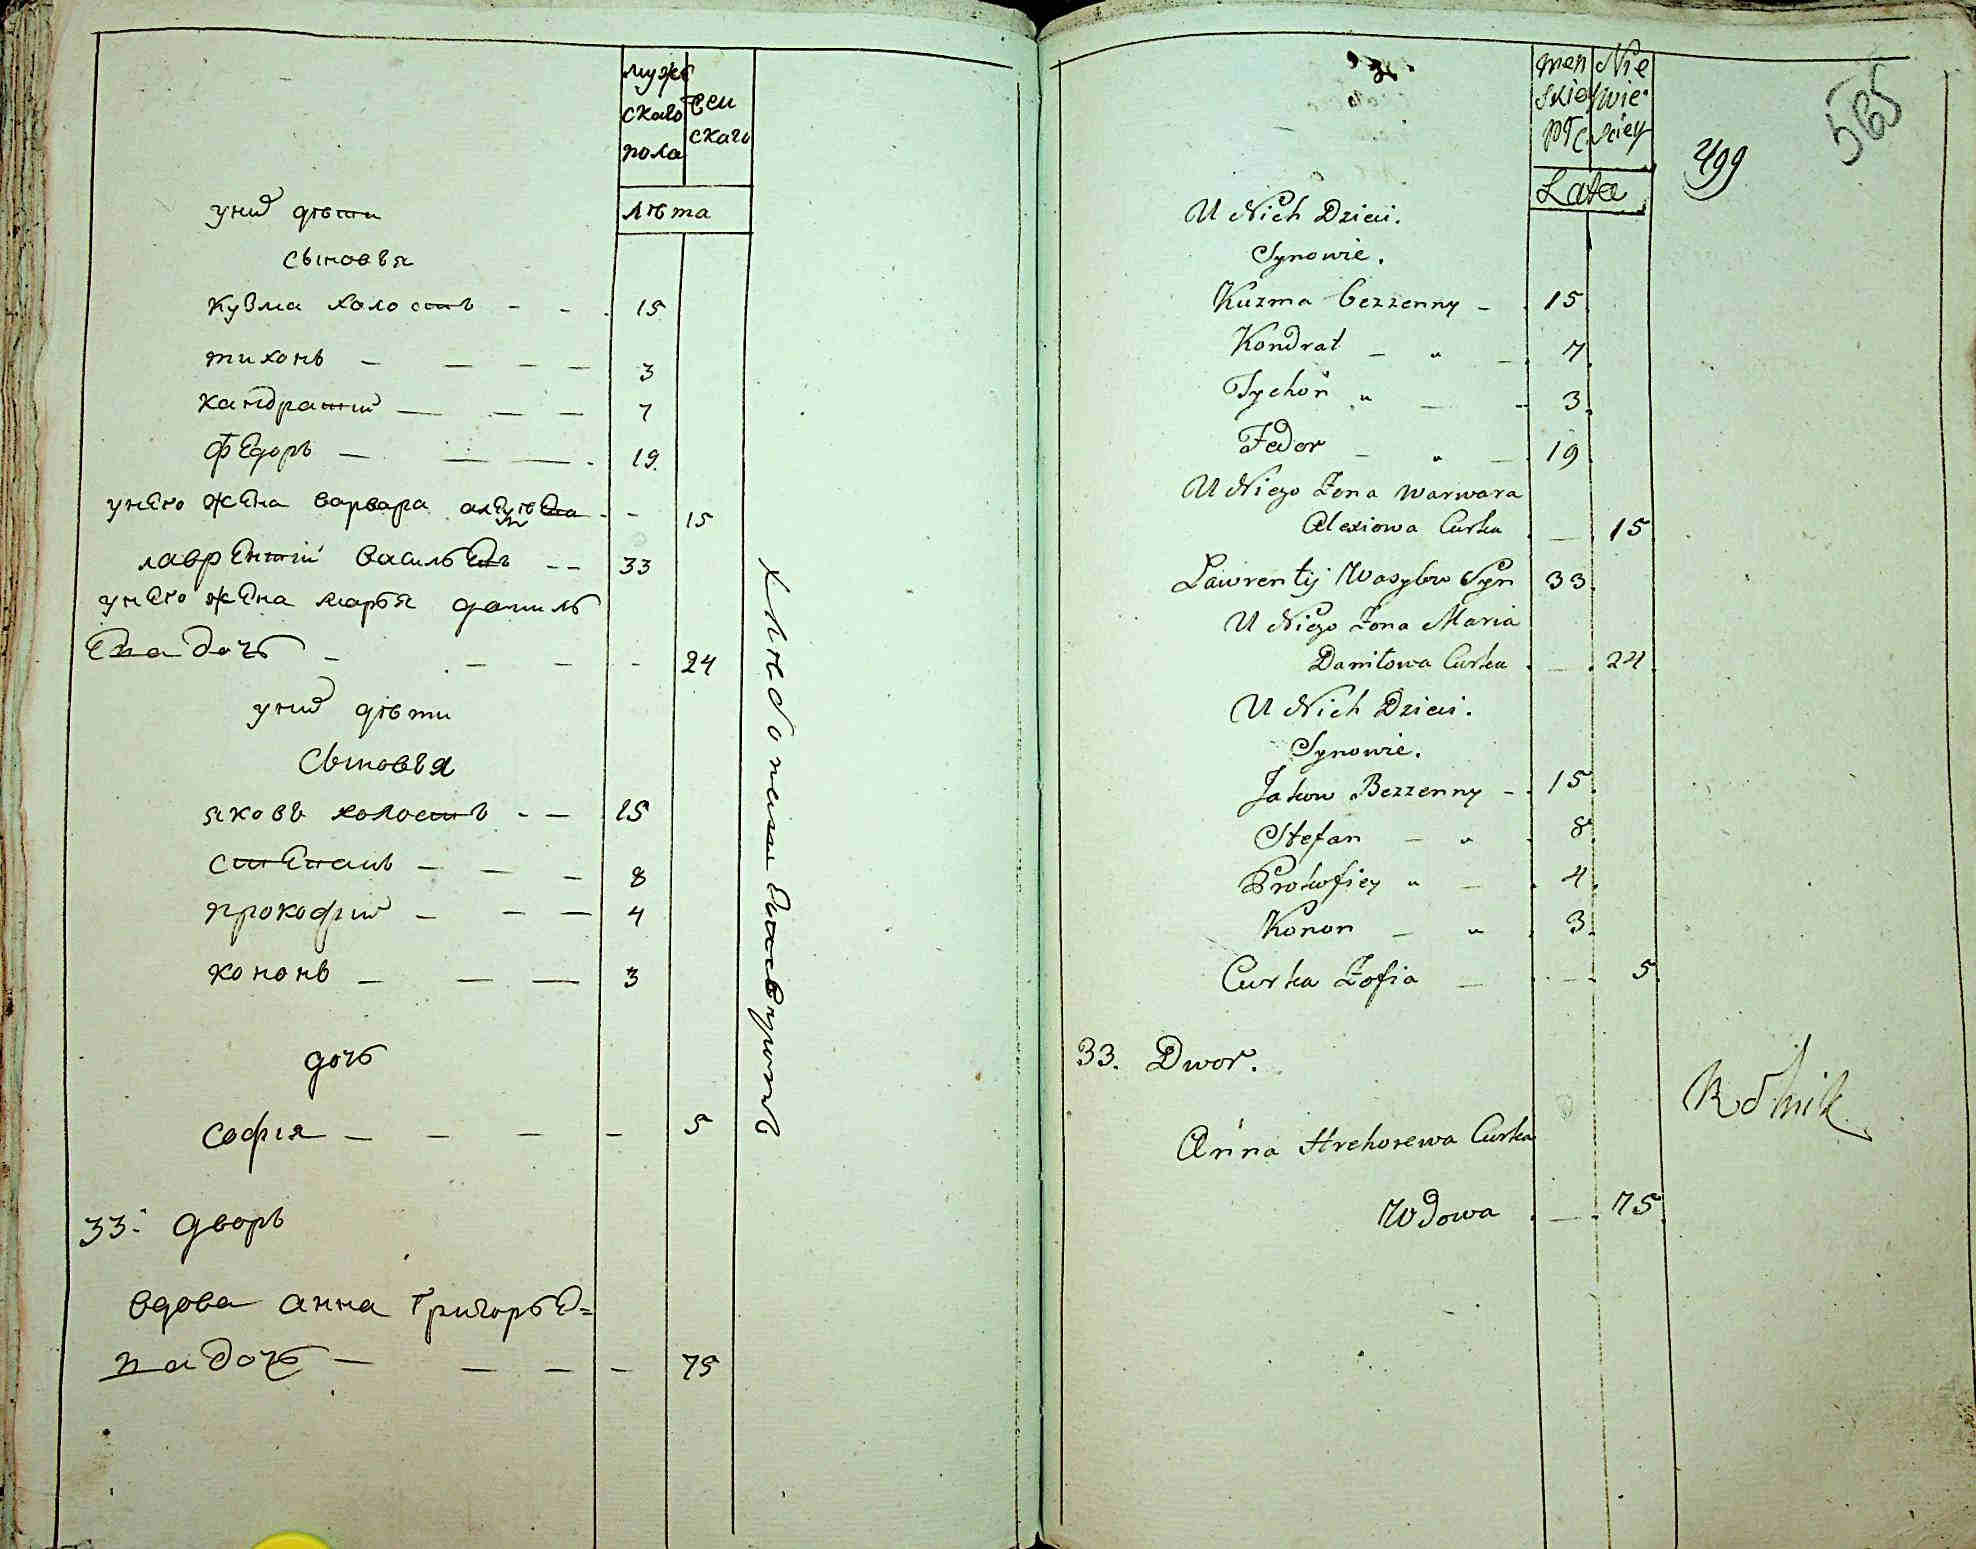 мужс
скаго
пола
жен
скаго
лѣта
у них дѣти
сыновья
кузма холостъ - - 15
тихонъ - - - - 3
кандратий - - - 7
федоръ - - - 19
у него жена варвара - - 15
лаврентий васильевъ - - 33
у него жена марья даниль
ева дочь - - - - 24
у них дѣти
сыновья
яковъ холостъ - - 15
степанъ - - - 8
прокофий - - - 4
кононъ - - - 3
дочь
софия - - - - 5
33. дворъ
вдова анна григорье=
ва дочь - - - - 75
хлебопашествуютъ
męs
skiey
płc.
Nie
wie
sciey
Lata
499
565
U Nich Dzieci.
Synowie.
Kuzma bezzenny - 15
Kondrat - " - 7
Tychon " - - 3
Fedor - " - 19
U Niego Zona Warwara
Alexiowa Curka - 15
Lawrentij Wasylow Syn 33
U Niego Zona Maria
Daniłowa Curka - 24
U Nich Dzieci.
Synowie.
Jakow Bezzenny - 15
Stefan - " 8
Prokofiey " - 4
Konon - " 3
Curka Zofia - - 5
33. Dwor.
Rolnik
Anna Hrehorewa Curka
Wdowa - 75